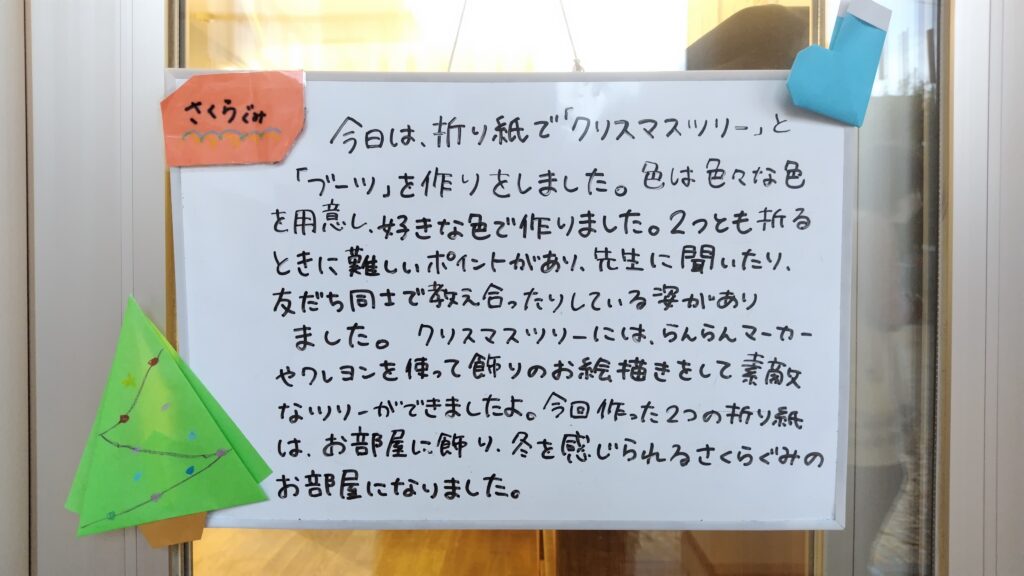 さくらぐみ
今日は、折り紙で「クリスマスツリー」と
「ブーツ」を作りをしました。色は色々な色
を用意し、好きな色で作りました。2つとも折る
ときに難しいポイントがあり、先生に聞いたり、
友だち同士で教え合ったりしている姿があり
ました。 クリスマスツリーには、らんらんマーカー
やクレヨンを使って飾りのお絵描きをして素敵
なツリーができましたよ。今回作った2つの折り紙
は、お部屋に飾り、冬を感じられるさくらぐみの
お部屋になりました。